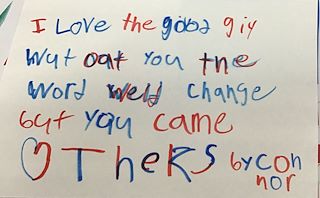 I Love the good giy
wut oat you tne
word weld change
but you came
OTHeRS by con
nor